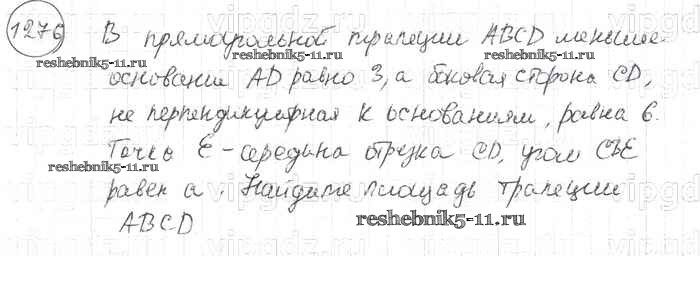 1276 В прямоугольной трапеции ABCD меньшее
reshebnik5-11.ru reshebnik5-11.ru
основание AD равно 3, а боковая сторона CD,
не перпендикулярная к основаниям, равна 6.
Точка E - середина отрезка CD, угол CBE
reshebnik5-11.ru
равен α. Найдите площадь трапеции
ABCD
reshebnik5-11.ru